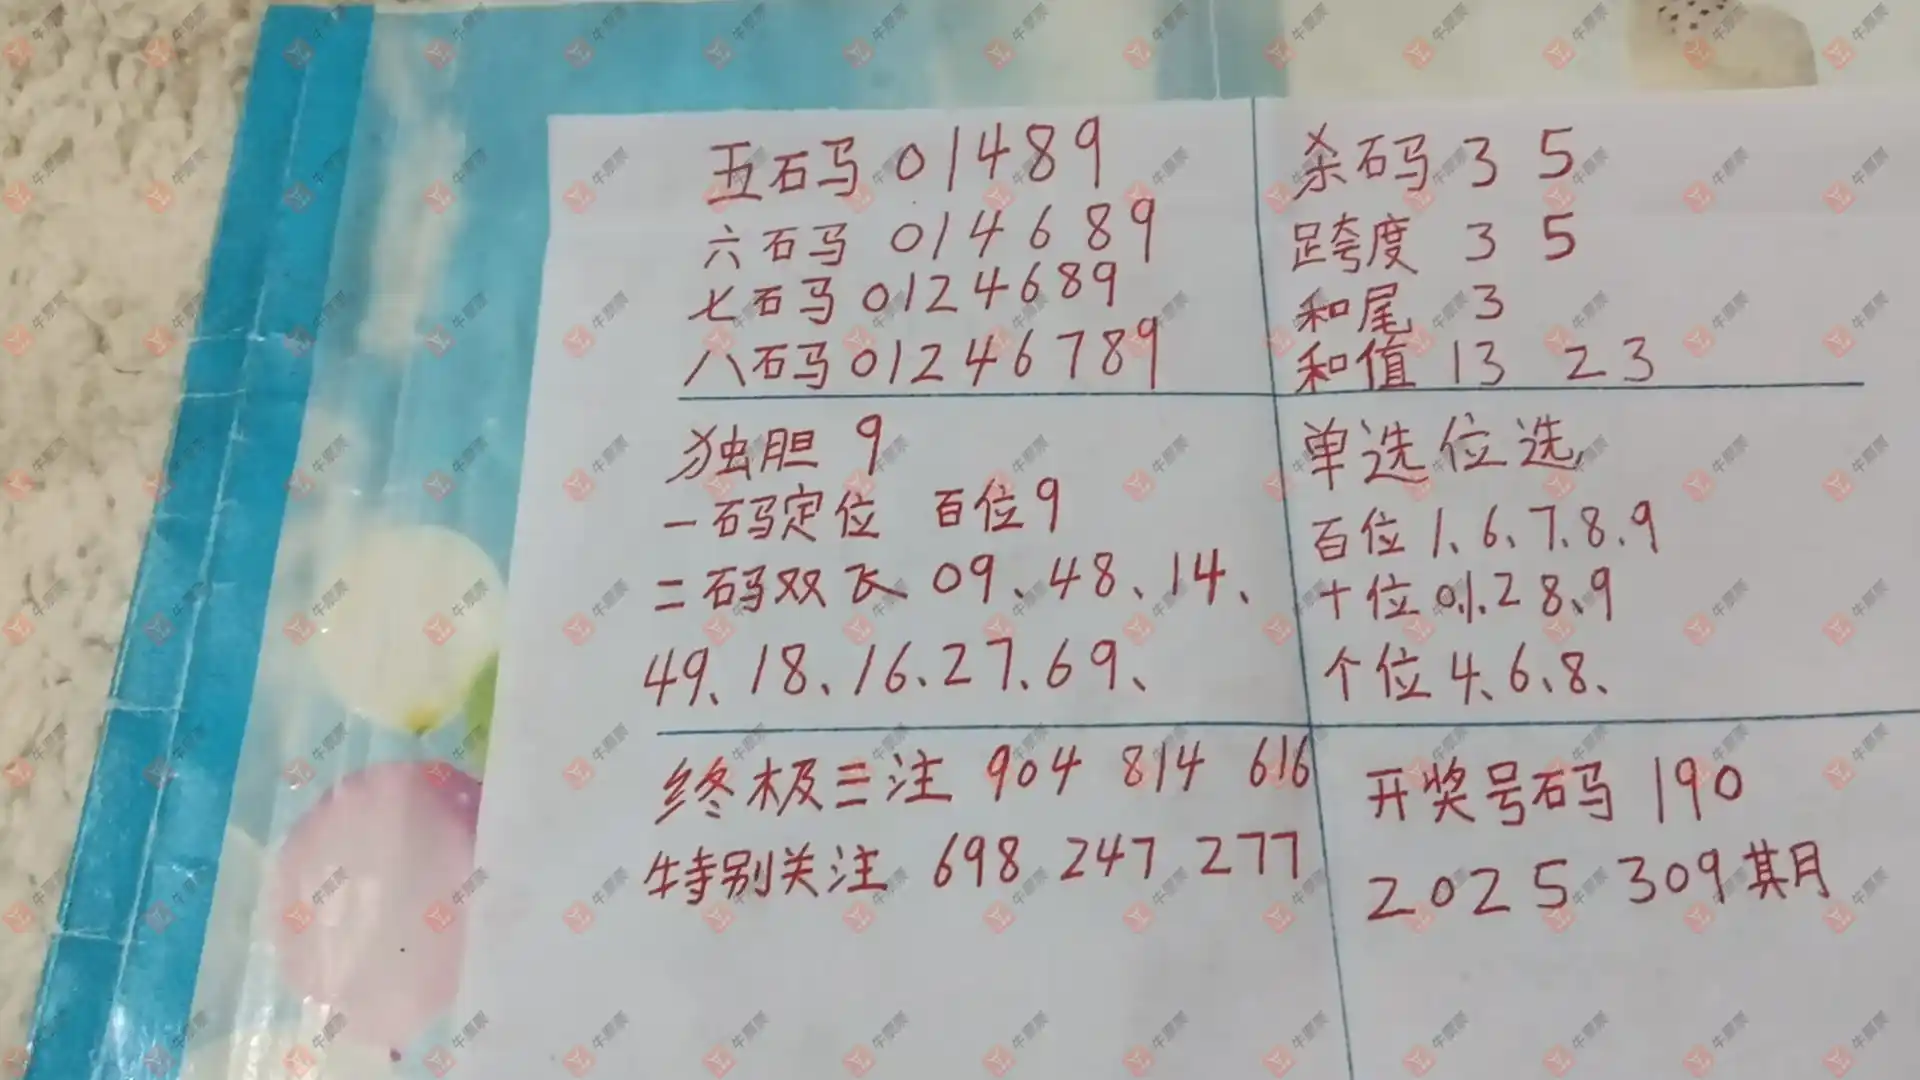 五码 01489
六码 014689
七码 0124689
八码 01246789
杀码 3 5
跨度 3 5
和尾 3
和值 13 23
独胆 9
一码定位 百位9
二码双飞 09、48、14、
49、18、16、27、69、
单选位选
百位 1、6、7、8、9
十位 0、1、2 8、9
个位 4、6、8、
终极三注 904 814 616
特别关注 698 247 277
开奖号码 190
2025 309期